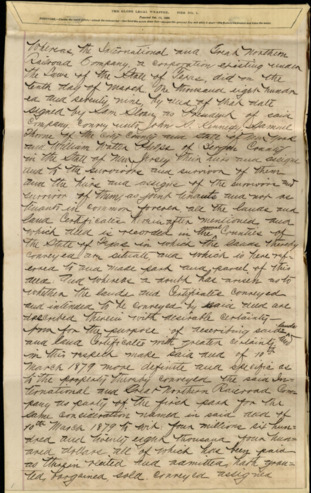 Whereas the International and Great Northern
Railroad Company, a corporation existing under
the Laws of the State of Texas, did on the
tenth day of March One thousand eight hundr
ed and seventy nine, by deed of that date
signed by Sam Sloan, as President of said
Company, convey unto John S. Kennedy, Samuel
Thorne of the City, County and State of New York
and William Walter Phelps of Bergen County
in the State of New Jersey their heirs and assigns
and to the survivors and survivor of them
and the heirs and assigns of the survivors and
survivor of them, as joint tenants and not as
tenants in common, forever, the Lands and
Land Certificates hereinafter mentioned, and
which deed is recorded in the Counties of
the State of Texas in which the Lands thereby
conveyed are situate, and which is here ref-
erred to and made part and parcel of this
deed. And whereas a doubt has arisen as to
whether the Lands and Certificates conveyed
and intended to be conveyed by said deed are
described therein with desirable certainty—
Now for the purpose of describing said lands
and Land Certificates with greater certainty and
in this respect make said deed of 10th
March 1879 more definite and specific as
to the property thereby conveyed, the said In-
ternational and Great Northern Railroad Com-
pany as party of the first part for the
same consideration named in said deed of
10th March 1879 to wit four millions six hun-
dred and twenty eight thousand four hun-
dred dollars, all of which has been paid
as therein recited and admitted, hath gran-
ted bargained sold conveyed assigned